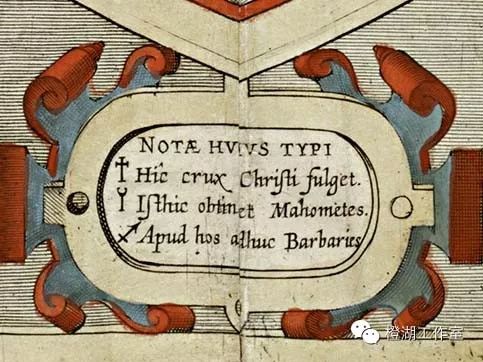 NOTÆ HVIVS TYPI
Hîc crux Christi fulget.
Isthic obtinet Mahometes.
Apud hos adhuc Barbaries
橙湖工作室